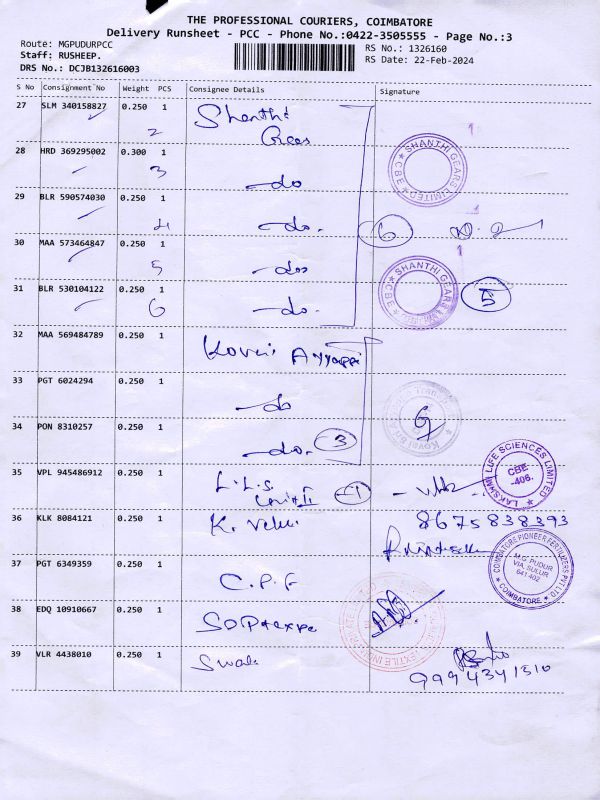 THE PROFESSIONAL COURIERS, COIMBATORE
Delivery Runsheet - PCC - Phone No.:0422-3505555 - Page No.:3
Route: MGPUDURPCC
RS No.: 1326160
Staff: RUSHEEP.
RS Date: 22-Feb-2024
DRS No.: DCJB132616003
S No Consignment No Weight PCS Consignee Details Signature
27 SLM 340158827 0.250 1 Shanthi
2 Gears
1
28 HRD 369295002 0.300 1
3 -do
SHANTHI GEARS LIMITED CBE
29 BLR 590574030 0.250 1
4 -do. 6
1
30 MAA 573464847 0.250 1
5 -do
1
31 BLR 530104122 0.250 1
6 -do.
SHANTHI GEARS CBE
5
32 MAA 569484789 0.250 1 Kovai Ayyappa
33 PGT 6024294 0.250 1
-do
34 PON 8310257 0.250 1
-do. 3
35 VPL 945486912 0.250 1 L.L.S.
Unit II -1
LAKSHMI LIFE SCIENCES LIMITED
CBE
-406.
36 KLK 8084121 0.250 1 K. Velui 8675838393
37 PGT 6349359 0.250 1
C.P.F
COIMBATORE PIONEER FERTILIZERS PVT LTD
M.G. PUDUR
VIA. SULUR
641-402
COIMBATORE
38 EDQ 10910667 0.250 1
39 VLR 4438010 0.250 1
9994341510